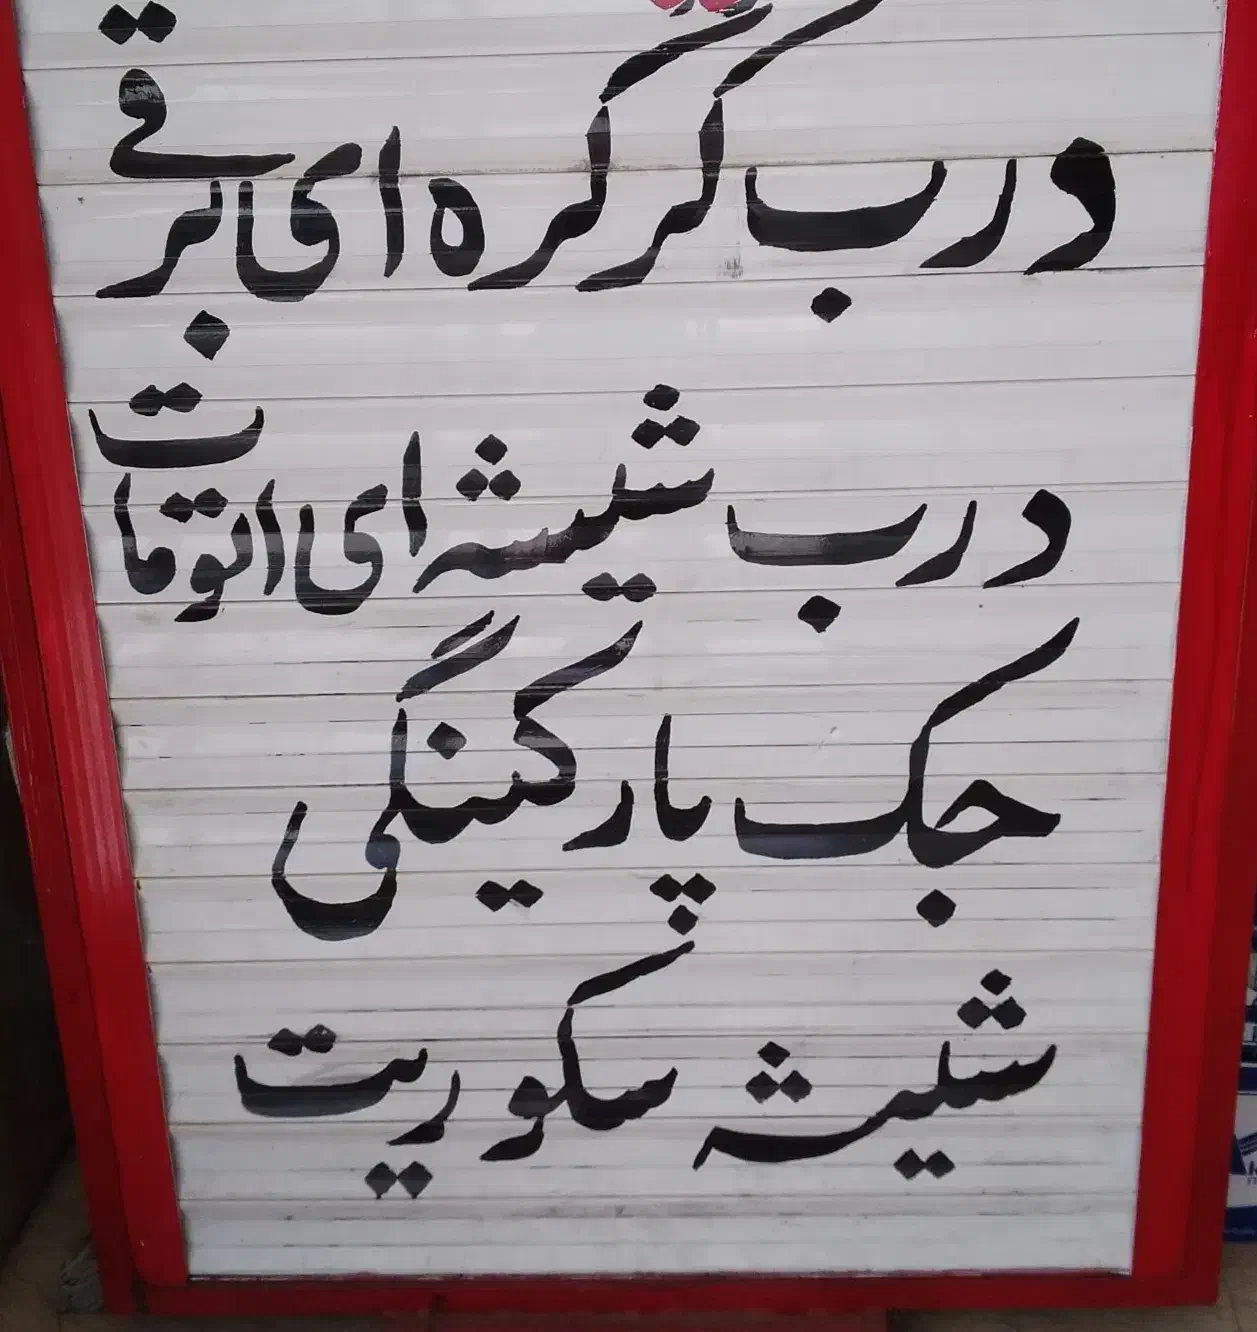 درب کرکره ای برقی
درب شیشه ای اتومات
جک پارکینگی
شیشه سکوریت